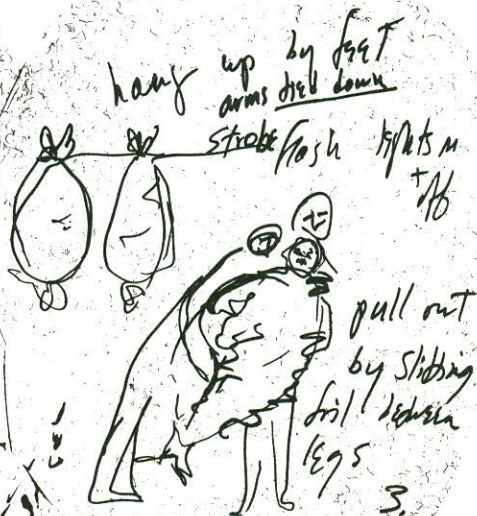 hang up by feet
arms tied down
strobe flash lights on
+ off
pull out
by slitting
between
legs
3.